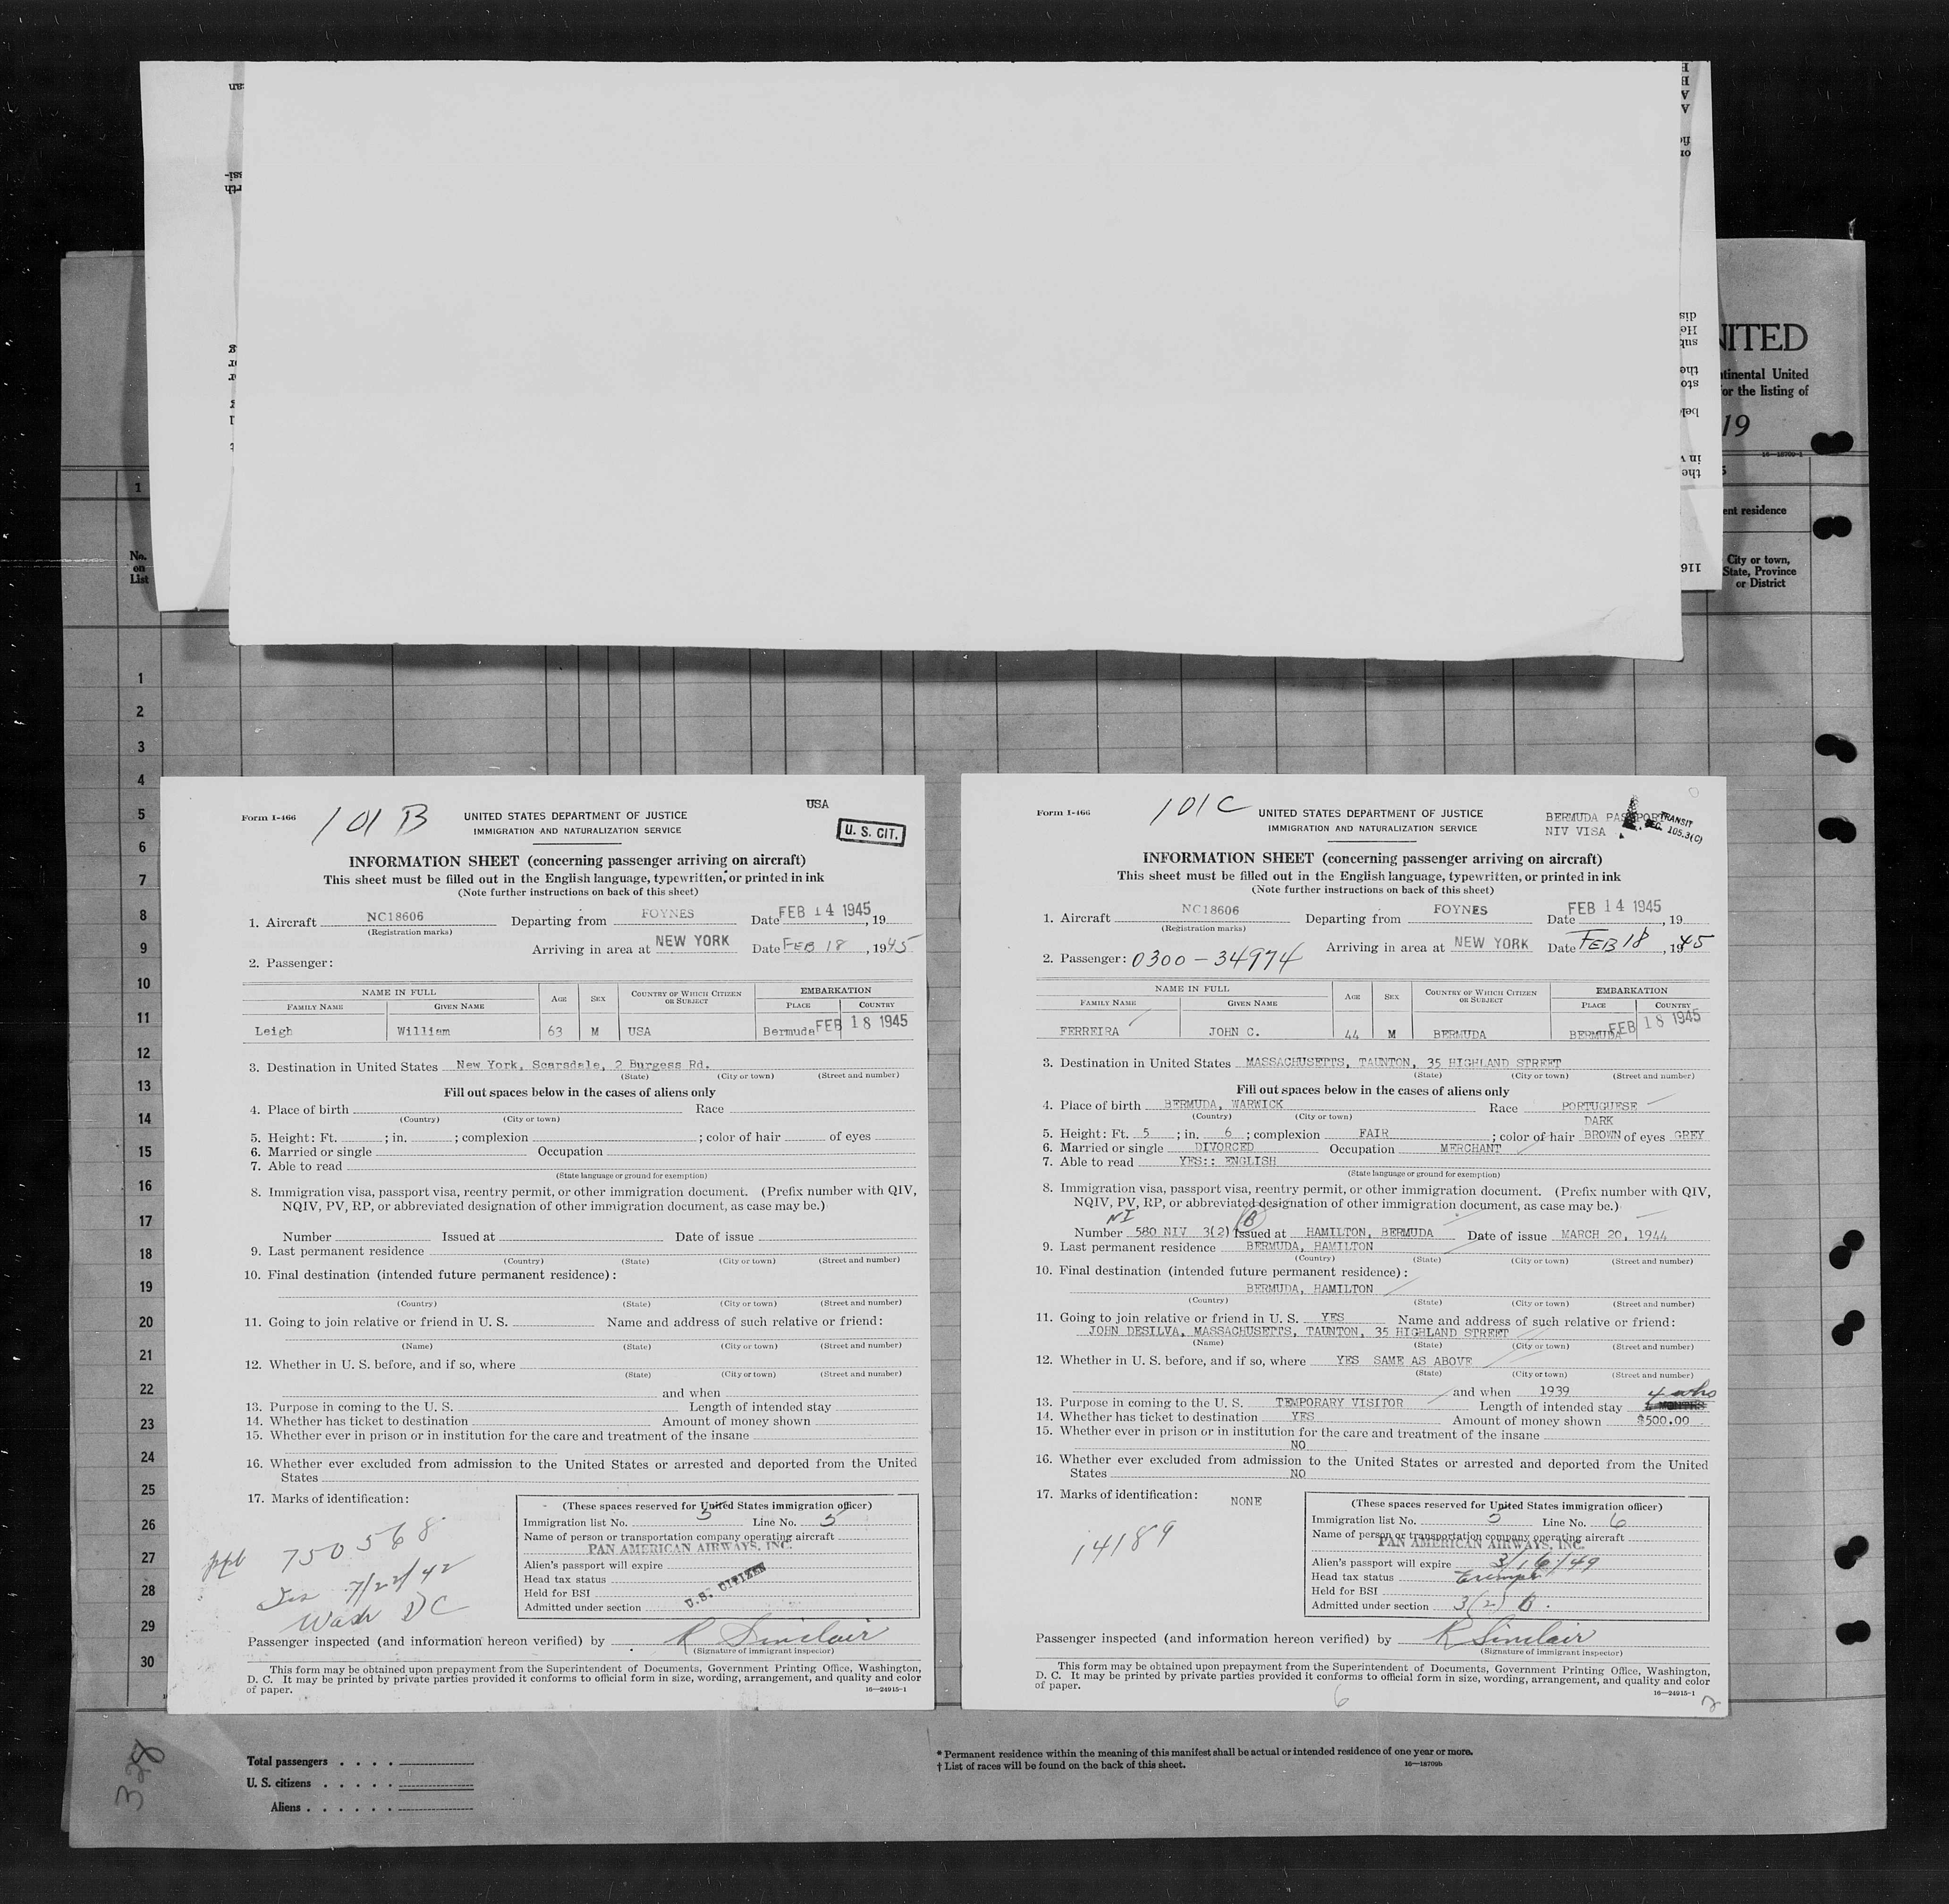 NITED
tinental United
or the listing of
19
16—18700-1
ent residence
City or town,
State, Province
or District
1
No.
on
List
1
2
3
4
5
6
7
8
9
10
11
12
13
14
15
16
17
18
19
20
21
22
23
24
25
26
27
28
29
30
Form I-466
101 B
UNITED STATES DEPARTMENT OF JUSTICE
IMMIGRATION AND NATURALIZATION SERVICE
USA
U. S. CIT.
INFORMATION SHEET (concerning passenger arriving on aircraft)
This sheet must be filled out in the English language, typewritten, or printed in ink
(Note further instructions on back of this sheet)
1. Aircraft NC18606 Departing from FOYNES Date FEB 14 1945, 19
(Registration marks)
Arriving in area at NEW YORK Date FEB 18, 1945
2. Passenger:
NAME IN FULL AGE SEX COUNTRY OF WHICH CITIZEN OR SUBJECT EMBARKATION
FAMILY NAME GIVEN NAME PLACE COUNTRY
Leigh William 63 M USA Bermuda FEB 18 1945
3. Destination in United States New York, Scarsdale, 2 Burgess Rd.
(State) (City or town) (Street and number)
Fill out spaces below in the cases of aliens only
4. Place of birth Race
(Country) (City or town)
5. Height: Ft. ; in. ; complexion ; color of hair of eyes
6. Married or single Occupation
7. Able to read
(State language or ground for exemption)
8. Immigration visa, passport visa, reentry permit, or other immigration document. (Prefix number with QIV,
NQIV, PV, RP, or abbreviated designation of other immigration document, as case may be.)
Number Issued at Date of issue
9. Last permanent residence
(Country) (State) (City or town) (Street and number)
10. Final destination (intended future permanent residence):
(Country) (State) (City or town) (Street and number)
11. Going to join relative or friend in U. S. Name and address of such relative or friend:
(Name) (State) (City or town) (Street and number)
12. Whether in U. S. before, and if so, where
(State) (City or town) (Street and number)
and when
13. Purpose in coming to the U. S. Length of intended stay
14. Whether has ticket to destination Amount of money shown
15. Whether ever in prison or in institution for the care and treatment of the insane
16. Whether ever excluded from admission to the United States or arrested and deported from the United
States
17. Marks of identification:
ppt 750568
Iss 7/22/42
Wash DC
(These spaces reserved for United States immigration officer)
Immigration list No. 5 Line No. 5
Name of person or transportation company operating aircraft
PAN AMERICAN AIRWAYS, INC.
Alien's passport will expire
Head tax status
Held for BSI
Admitted under section
U.S. CITIZEN
Passenger inspected (and information hereon verified) by R Sinclair
(Signature of immigrant inspector)
This form may be obtained upon prepayment from the Superintendent of Documents, Government Printing Office, Washington,
D. C. It may be printed by private parties provided it conforms to official form in size, wording, arrangement, and quality and color
of paper.
16—24915-1
Form I-466
101 C
UNITED STATES DEPARTMENT OF JUSTICE
IMMIGRATION AND NATURALIZATION SERVICE
BERMUDA PASSPORT
NIV VISA
TRANSIT
SEC. 105.3(C)
INFORMATION SHEET (concerning passenger arriving on aircraft)
This sheet must be filled out in the English language, typewritten, or printed in ink
(Note further instructions on back of this sheet)
1. Aircraft NC18606 Departing from FOYNES Date FEB 14 1945, 19
(Registration marks)
Arriving in area at NEW YORK Date FEB 18, 1945
2. Passenger: 0300-34974
NAME IN FULL AGE SEX COUNTRY OF WHICH CITIZEN OR SUBJECT EMBARKATION
FAMILY NAME GIVEN NAME PLACE COUNTRY
FERREIRA JOHN C. 44 M BERMUDA BERMUDA FEB 18 1945
3. Destination in United States MASSACHUSETTS, TAUNTON, 35 HIGHLAND STREET
(State) (City or town) (Street and number)
Fill out spaces below in the cases of aliens only
4. Place of birth BERMUDA, WARWICK Race PORTUGUESE
(Country) (City or town)
DARK
5. Height: Ft. 5 ; in. 6 ; complexion FAIR ; color of hair BROWN of eyes GREY
6. Married or single DIVORCED Occupation MERCHANT
7. Able to read YES:: ENGLISH
(State language or ground for exemption)
8. Immigration visa, passport visa, reentry permit, or other immigration document. (Prefix number with QIV,
NQIV, PV, RP, or abbreviated designation of other immigration document, as case may be.)
NI (B)
Number 580 NIV 3(2) Issued at HAMILTON, BERMUDA Date of issue MARCH 20, 1944
9. Last permanent residence BERMUDA, HAMILTON
(Country) (State) (City or town) (Street and number)
10. Final destination (intended future permanent residence):
BERMUDA, HAMILTON
(Country) (State) (City or town) (Street and number)
11. Going to join relative or friend in U. S. YES Name and address of such relative or friend:
JOHN DESILVA, MASSACHUSETTS, TAUNTON, 35 HIGHLAND STREET
(Name) (State) (City or town) (Street and number)
12. Whether in U. S. before, and if so, where YES SAME AS ABOVE
(State) (City or town) (Street and number)
and when 1939
13. Purpose in coming to the U. S. TEMPORARY VISITOR Length of intended stay 4 wks
14. Whether has ticket to destination YES Amount of money shown $500.00
15. Whether ever in prison or in institution for the care and treatment of the insane
NO
16. Whether ever excluded from admission to the United States or arrested and deported from the United
States NO
17. Marks of identification: NONE
14189
(These spaces reserved for United States immigration officer)
Immigration list No. 5 Line No. 6
Name of person or transportation company operating aircraft
PAN AMERICAN AIRWAYS, INC.
Alien's passport will expire 3/16/49
Head tax status Exempt
Held for BSI
Admitted under section 3(2) B.
Passenger inspected (and information hereon verified) by R Sinclair
(Signature of immigrant inspector)
This form may be obtained upon prepayment from the Superintendent of Documents, Government Printing Office, Washington,
D. C. It may be printed by private parties provided it conforms to official form in size, wording, arrangement, and quality and color
of paper.
16—24915-1
6
2
328
Total passengers
U. S. citizens
Aliens
* Permanent residence within the meaning of this manifest shall be actual or intended residence of one year or more.
† List of races will be found on the back of this sheet.
16—18700b